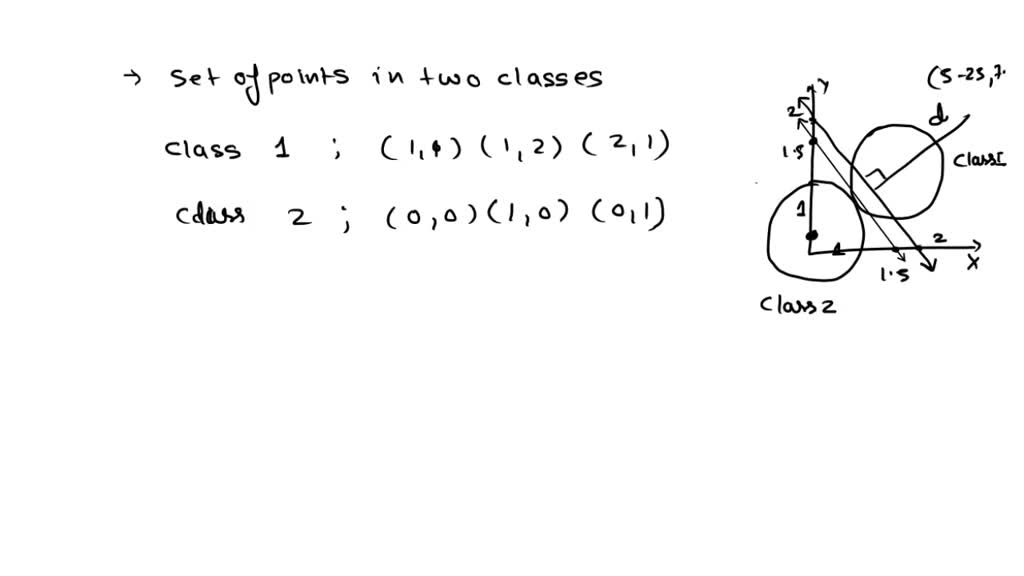 → Set of points in two classes
class 1 ; (1,1) (1,2) (2,1)
class 2 ; (0,0) (1,0) (0,1)
(5-25,7.
y
2
d
1.5
Class I
1
1
2
1.5
X
Class 2